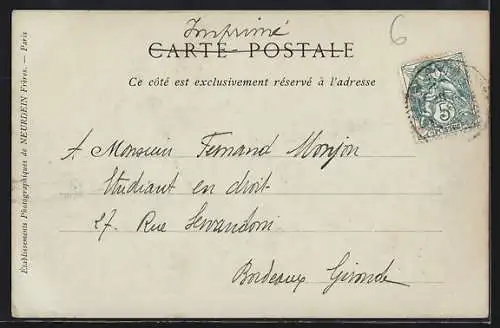 Imprimé
6
CARTE POSTALE
Ce côté est exclusivement réservé à l'adresse
5
A Monsieur Fernand Monjon
Etudiant en droit
27 Rue Servandoni
Bordeaux Gironde
Etablissements Photographiques de NEURDEIN Frères. — Paris